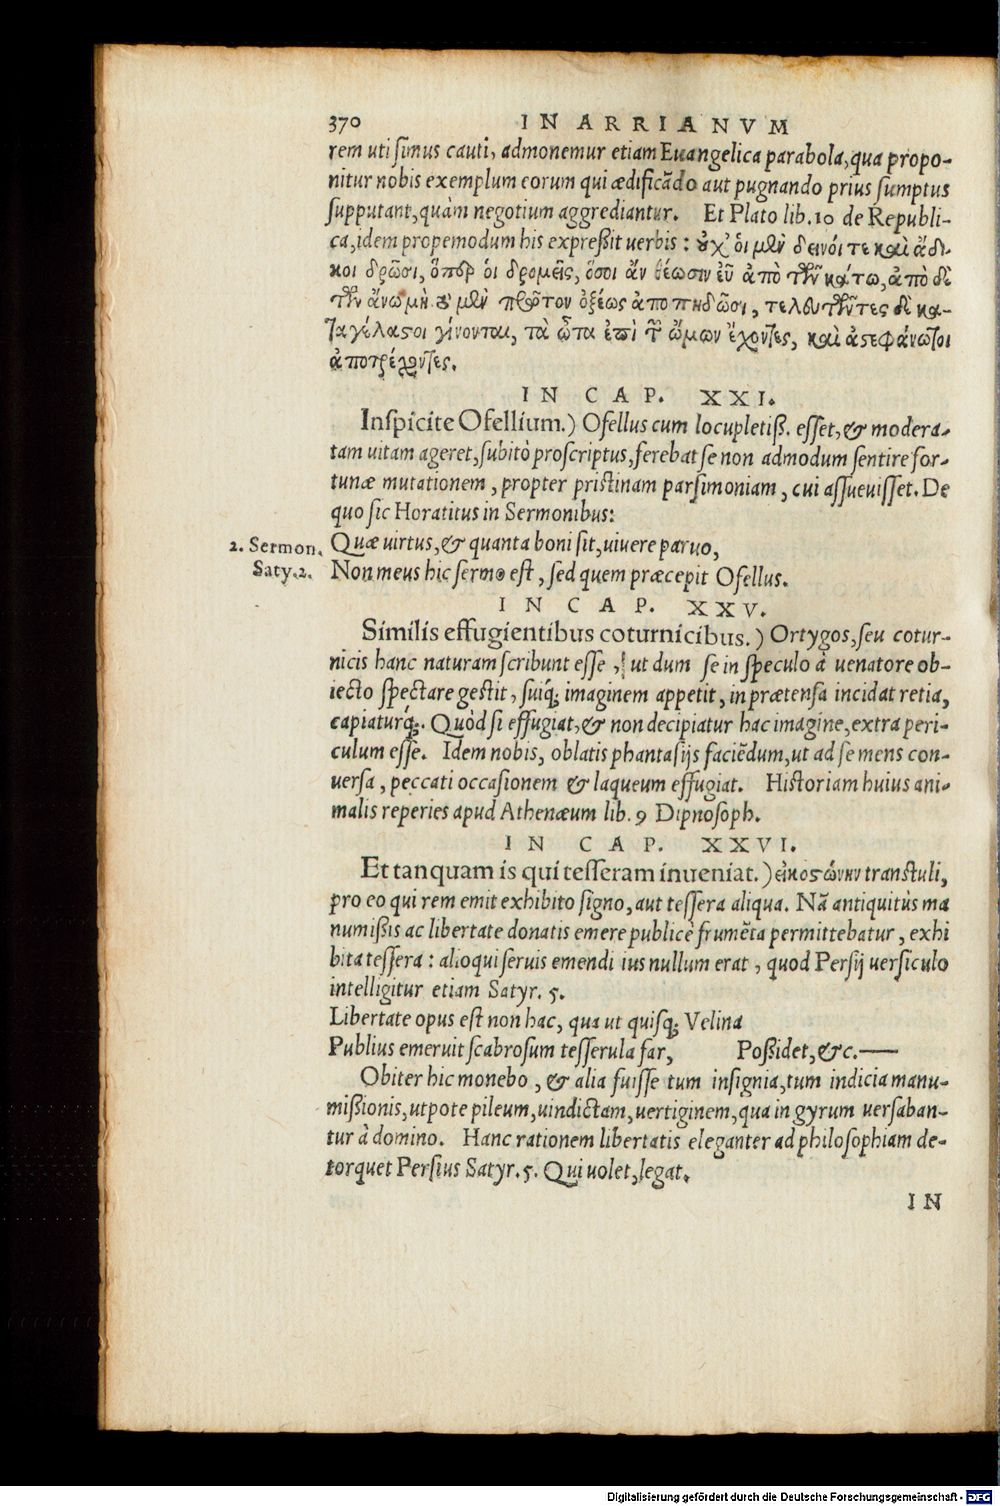 370 IN ARRIANVM
rem uti simus cauti, admonemur etiam Euangelica parabola, qua propo-
nitur nobis exemplum eorum qui ædificãdo aut pugnando prius sumptus
supputant, quàm negotium aggrediantur. Et Plato lib. 10 de Republi-
ca, idem propemodum his expreßit uerbis: οὐχ' ὁι μὲν δεινόι τε καὶ ἄδι-
κοι δρῶσι, ὅπερ ὁι δρομεῖς, ὅσοι ἂν θέωσιν ἐῦ ἀπὸ τῶν κάτω, ἀπὸ δὲ
τῶν ἄνω μὴ. ὀ μὲν πρῶτον ὀξέως ἀποπηδῶσι, τελευτῶντες δὲ κα-
ταγέλαστοι γίνονται, τὰ ὦτα ἐπὶ τῶν ὤμων ἔχοντες, καὶ ἀστεφάνωτοι
ἀποτρέχοντες.
IN CAP. XXI.
Inspicite Ofellium.) Ofellus cum locupletiß. esset, & modera-
tam uitam ageret, subitò proscriptus, ferebat se non admodum sentire for-
tunæ mutationem, propter pristinam parsimoniam, cui assueuisset. De
quo sic Horatitus in Sermonibus:
2. Sermon. Quæ uirtus, & quanta boni sit, uiuere paruo,
Saty. 2. Non meus hic sermo est, sed quem præcepit Ofellus.
IN CAP. XXV.
Similis effugientibus coturnicibus.) Ortygos, seu cotur-
nicis hanc naturam scribunt esse, ut dum se in speculo à uenatore ob-
iecto spectare gestit, suiq; imaginem appetit, in prætensa incidat retia,
capiaturq́;. Quòd si effugiat, & non decipiatur hac imagine, extra peri-
culum esse. Idem nobis, oblatis phantasijs faciẽdum, ut ad se mens con-
uersa, peccati occasionem & laqueum effugiat. Historiam huius ani-
malis reperies apud Athenæum lib. 9 Dipnosoph.
IN CAP. XXVI.
Et tanquam is qui tesseram inueniat.) ἐικοστώνην transtuli,
pro eo qui rem emit exhibito signo, aut tessera aliqua. Nã antiquitùs ma
numißis ac libertate donatis emere publicè frumẽta permittebatur, exhi
bita tessera: alioqui seruis emendi ius nullum erat, quod Persij uersiculo
intelligitur etiam Satyr. 5.
Libertate opus est non hac, qua ut quisq; Velina
Publius emeruit scabrosum tesserula far, Poßidet, &c.—
Obiter hic monebo, & alia fuisse tum insignia, tum indicia manu-
mißionis, utpote pileum, uindictam, uertiginem, qua in gyrum uersaban-
tur à domino. Hanc rationem libertatis eleganter ad philosophiam de-
torquet Persius Satyr. 5. Qui uolet, legat.
IN
Digitalisierung gefördert durch die Deutsche Forschungsgemeinschaft - DFG